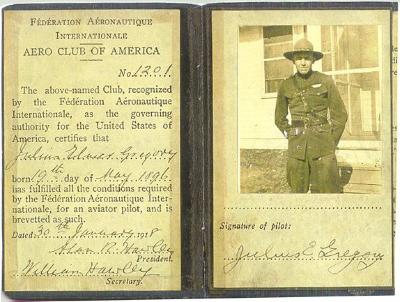 FÉDÉRATION AÉRONAUTIQUE
INTERNATIONALE
AERO CLUB OF AMERICA
No. 1201.
The above-named Club, recognized
by the Fédération Aéronautique
Internationale, as the governing
authority for the United States of
America, certifies that
Julius Edwar Gregory
born 19th day of May 1896
has fulfilled all the conditions required
by the Fédération Aéronautique Inter-
nationale, for an aviator pilot, and is
brevetted as such.
Dated 30th January 1918
Alan R. Hawley
President.
William Hawley
Secretary.
Signature of pilot:
Julius E Gregory